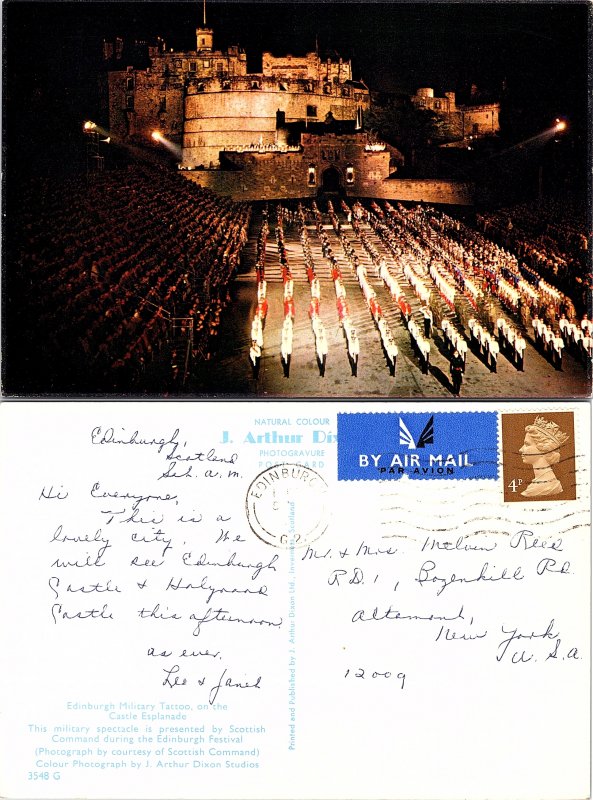 Edinburgh,
Scotland
Sat. a.m.
Hi Everyone,
This is a
lovely city. We
will see Edinburgh
Castle & Holyrood
Castle this afternoon.
as ever,
Lee & Janet
NATURAL COLOUR
J. Arthur Dix
PHOTOGRAVURE
POST CARD
BY AIR MAIL
PAR AVION
4P
EDINBURGH
Mr. & Mrs. Melvin Reed
R.D. 1, Bozenkill Rd.
Altamont,
New York
U.S.A.
12009
Printed and Published by J. Arthur Dixon Ltd., Inverness, Scotland
Edinburgh Military Tattoo, on the
Castle Esplanade
This military spectacle is presented by Scottish
Command during the Edinburgh Festival
(Photograph by courtesy of Scottish Command)
Colour Photograph by J. Arthur Dixon Studios
3548 G